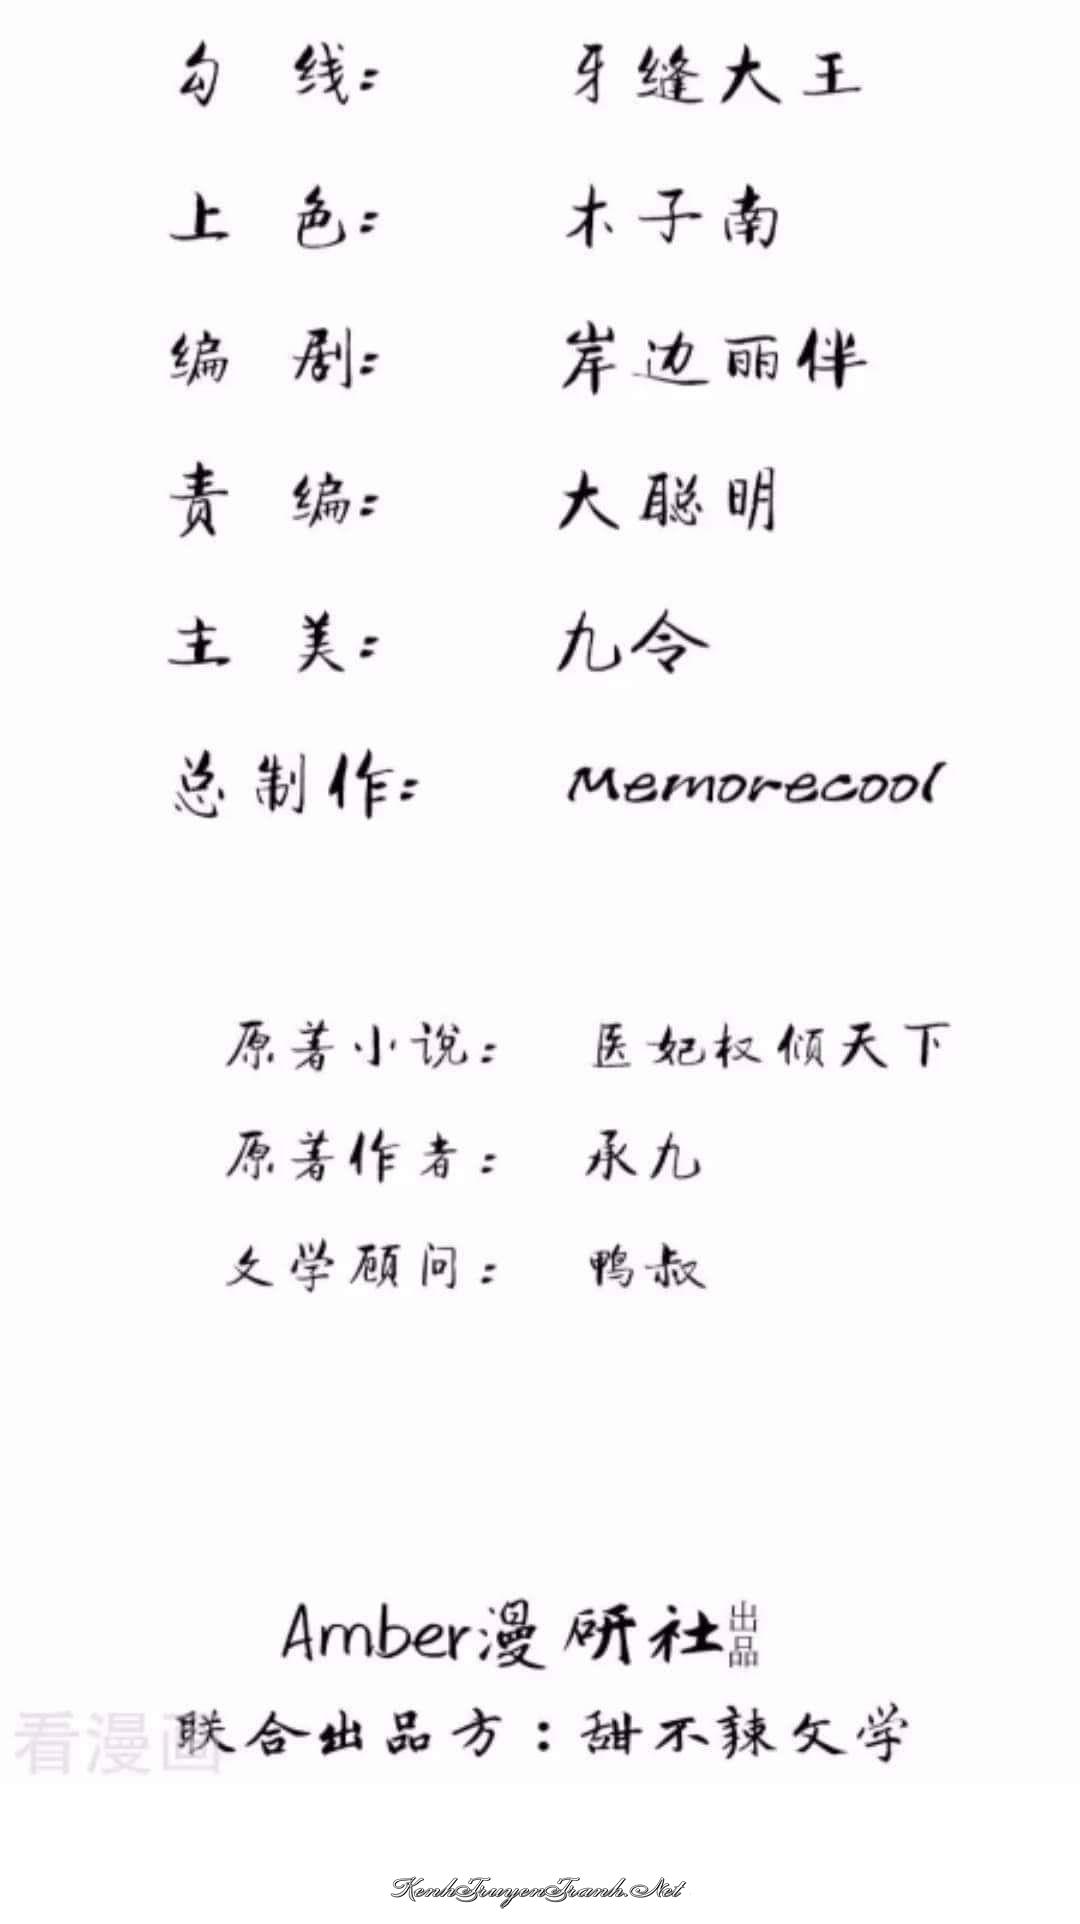 勾线：牙缝大王
上色：木子南
编剧：岸边丽伴
责编：大聪明
主美：九令
总制作：Memorecool
原著小说：医妃权倾天下
原著作者：承九
文学顾问：鸭叔
Amber漫研社出品
联合出品方：甜不辣文学
看漫画
KenhTruyenTranh.Net